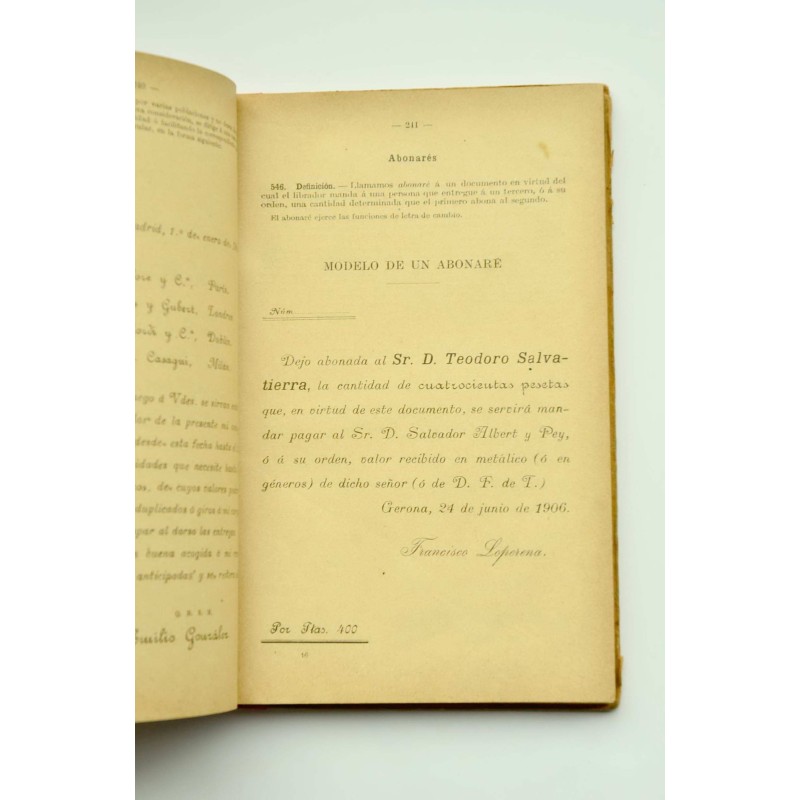 por varias poblaciones y no
consideración, se dirige á
ó facilitando la
en la forma siguiente:
1.º de enero de
y C.ª, París.
y Gubert, Londres
y C.ª, Dublín.
Casaqui,
á Vdes. se sirvan
de la presente mi
desde esta fecha hasta
que necesite
de cuyos valores
duplicados ó giros á mi
al darse les entregas
buena acogida á mi
anticipadas y se
Emilio González
— 241 —
Abonarés
546. Definición. — Llamamos abonaré á un documento en virtud del
cual el librador manda á una persona que entregue á un tercero, ó á su
orden, una cantidad determinada que el primero abona al segundo.
El abonaré ejerce las funciones de letra de cambio.
MODELO DE UN ABONARÉ
Núm.
Dejo abonada al Sr. D. Teodoro Salva-
tierra, la cantidad de cuatrocientas pesetas
que, en virtud de este documento, se servirá man-
dar pagar al Sr. D. Salvador Albert y Pey,
ó á su orden, valor recibido en metálico (ó en
géneros) de dicho señor (ó de D. F. de T.)
Gerona, 24 de junio de 1906.
Francisco Loperena.
Por Ptas. 400
16